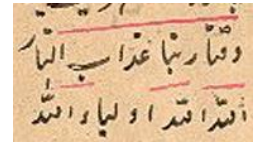 وقنا ربنا عذاب النار
الله الله اولياء الله